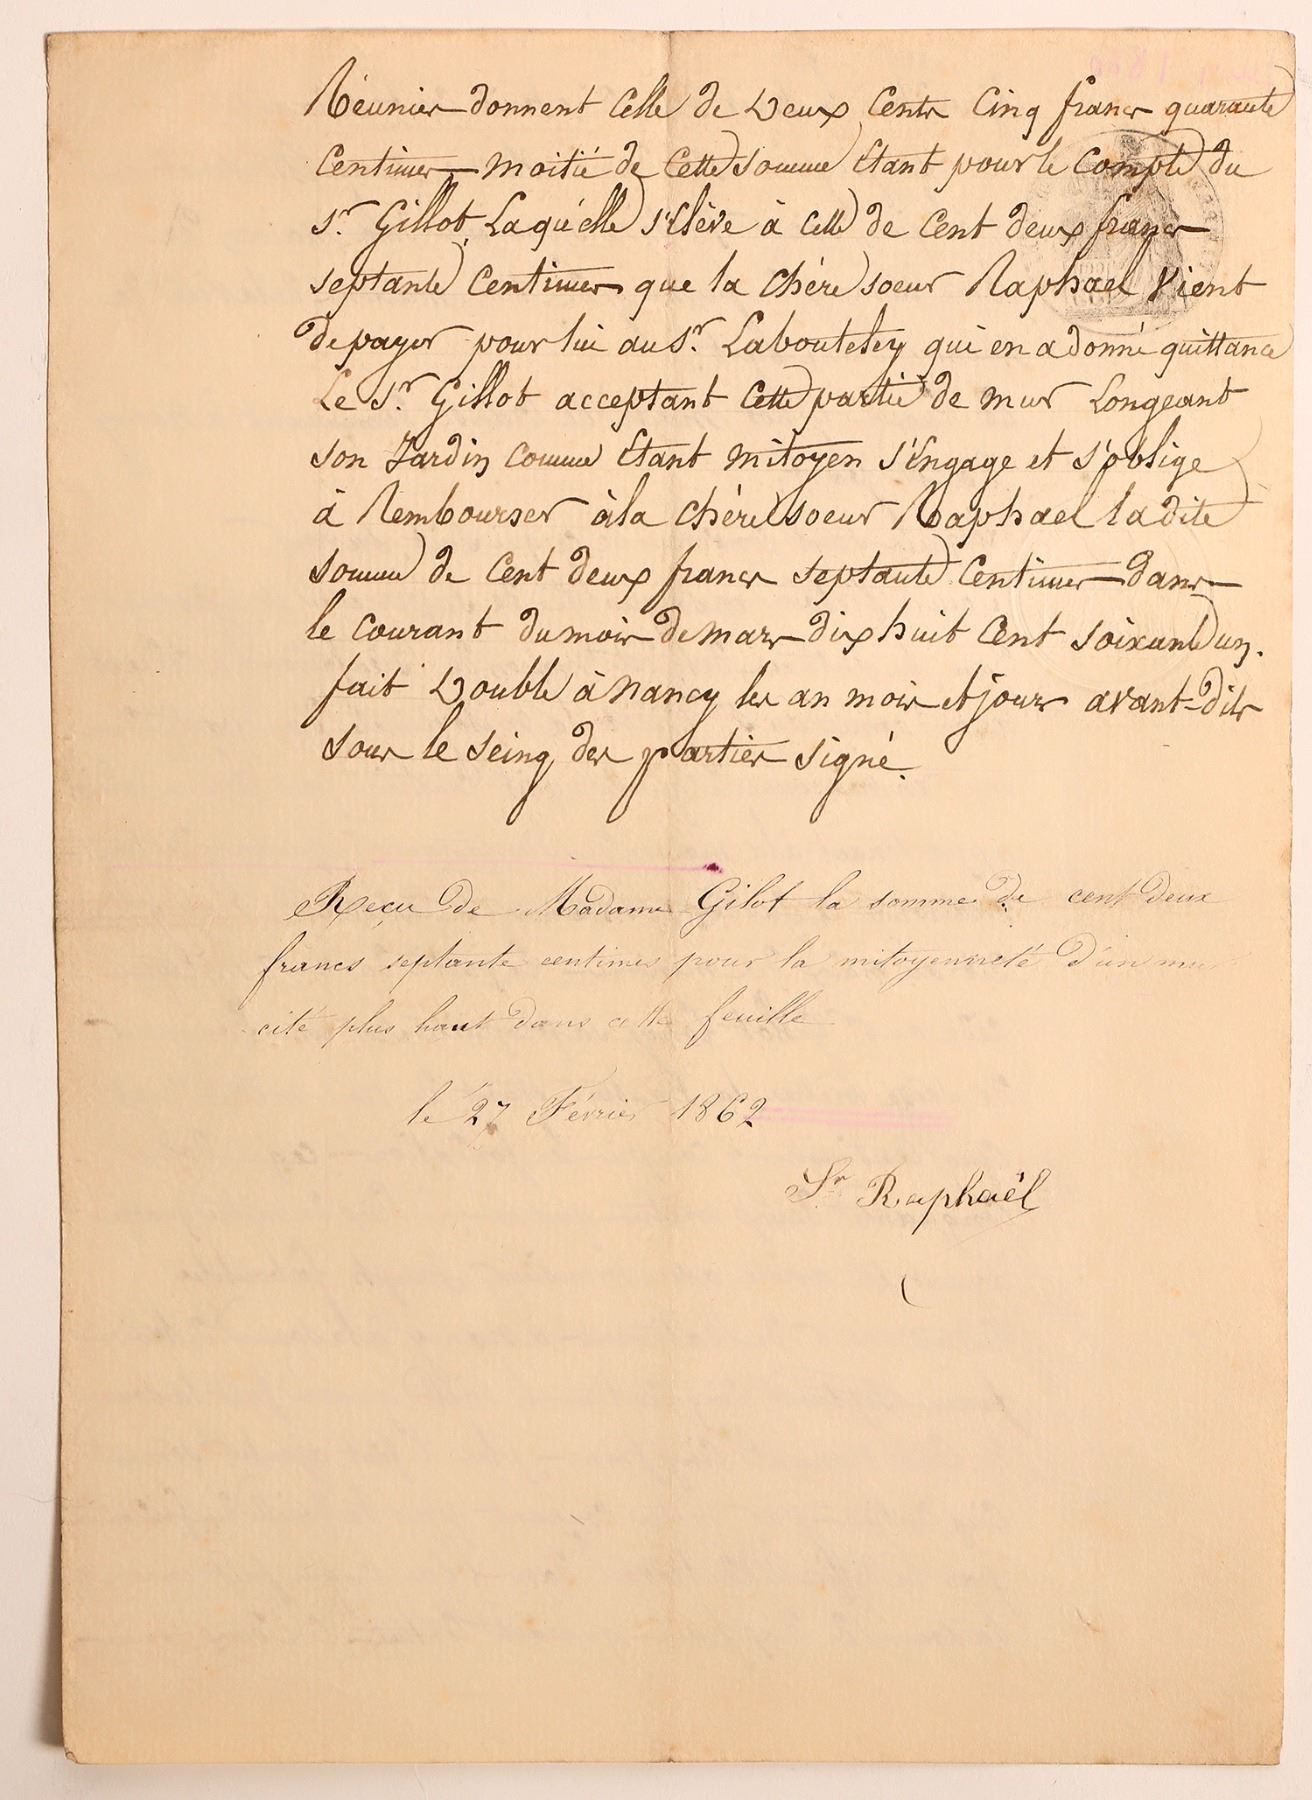 Réunies donnent Celle de Deux Cents Cinq francs quarante
Centimes moitié de Cette somme Etant pour le Compte du
Sr. Gillot, Laquélle s'Elève à Celle de Cent deux francs
septante Centimes que la Chére soeur Raphael Vient
de payer pour lui au Sr. qui en a donné quittance
Le Sr. Gillot acceptant Cette partie de mur Longeant
son Jardin Comme Etant mitoyen s'Engage et s'oblige
à Rembourser à la Chére soeur Raphael la dite
somme de Cent deux francs septante Centimes dans
le Courant du mois de mars dix huit Cent soixante un.
fait Double à Nancy les an mois et jours avant-dits
sous le seing des parties signé.
Reçu de Madame Gilot la somme de cent deux
francs septante centimes pour la mitoyenneté d'un mur
cité plus haut dans cette feuille
le 27 Février 1862
Sr. Raphaël